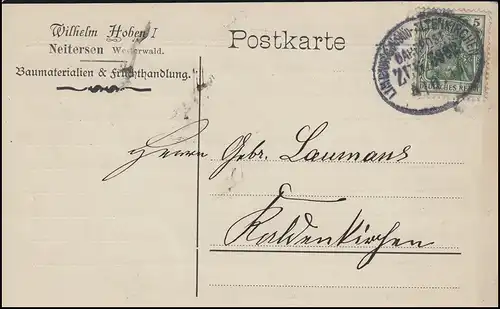 Wilhelm Hoben I
Neitersen Westerwald.
Baumaterialien & Fruchthandlung.
Postkarte
5
DEUTSCHES REICH
BAHNPOST
Herren Gebr. Laumans
Kaldenkirchen